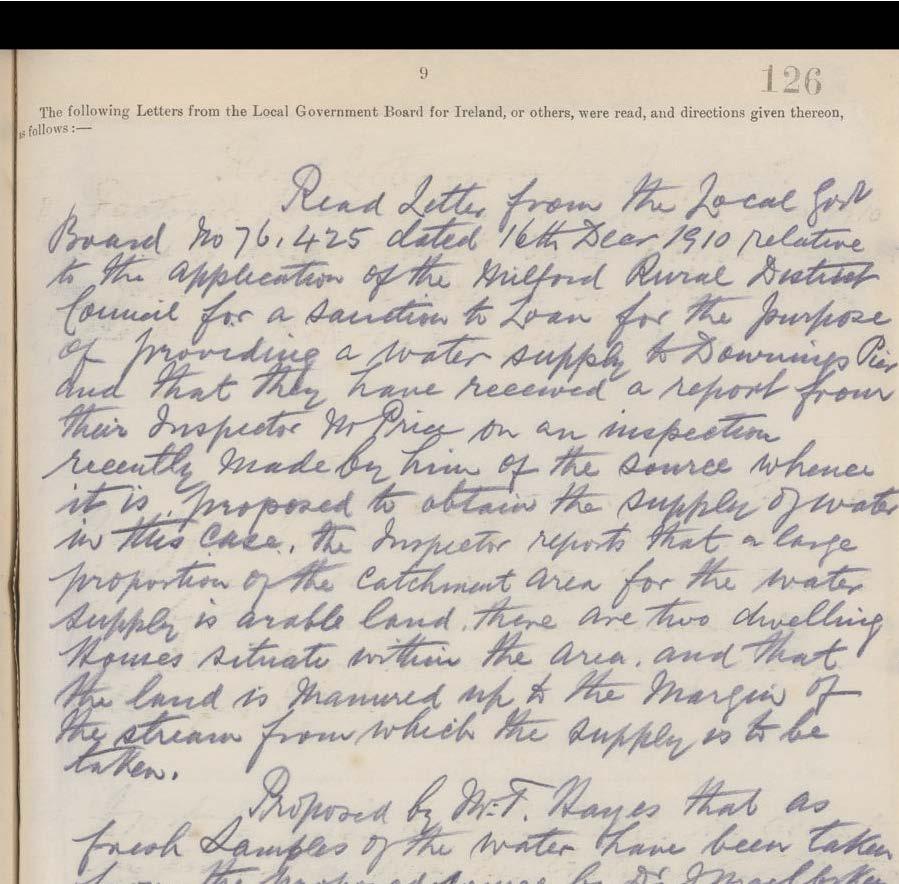 9
126
The following Letters from the Local Government Board for Ireland, or others, were read, and directions given thereon,
as follows :—
Read Letter from the Local Govt
Board No 76,425 dated 16th Decr 1910 relative
to the application of the Milford Rural District
Council for a sanction to Loan for the purpose
of providing a water supply to Downings Pier
and that they have received a report from
their Inspector Mr Price on an inspection
recently made by him of the source whence
it is proposed to obtain the supply of water
in this case. the Inspector reports that a large
proportion of the catchment area for the water
supply is arable land. there are two dwelling
Houses situate within the area. and that
the land is manured up to the margin of
the stream from which the supply is to be
taken.
Proposed by Mr. T. Hayes that as
fresh samples of the water have been taken
the proposed by Dr